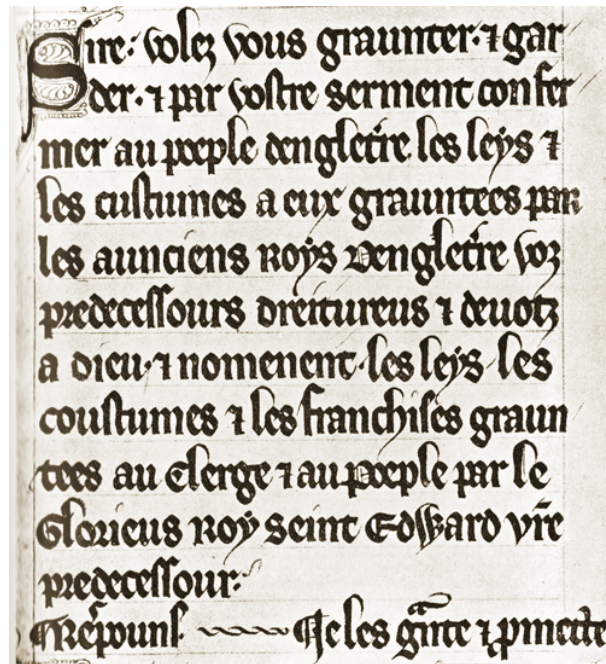 Sire: volez vous graunter· ⁊ gar
der· ⁊ par vostre serment confer
mer au poeple dengletr̄e les leys ⁊
les custumes a eux grauntees par
les aunciens Roys Dengletr̄e voz
predecessours dreitureus ⁊ devotz
a dieu· ⁊ nomement· les leys les
coustumes ⁊ les franchises graun
tees au Clerge ⁊ au poeple par le
Glorieus Roy seint Edward vr̄e
predecessour:
Respouns. Je les g̃nte ⁊ p̱mette